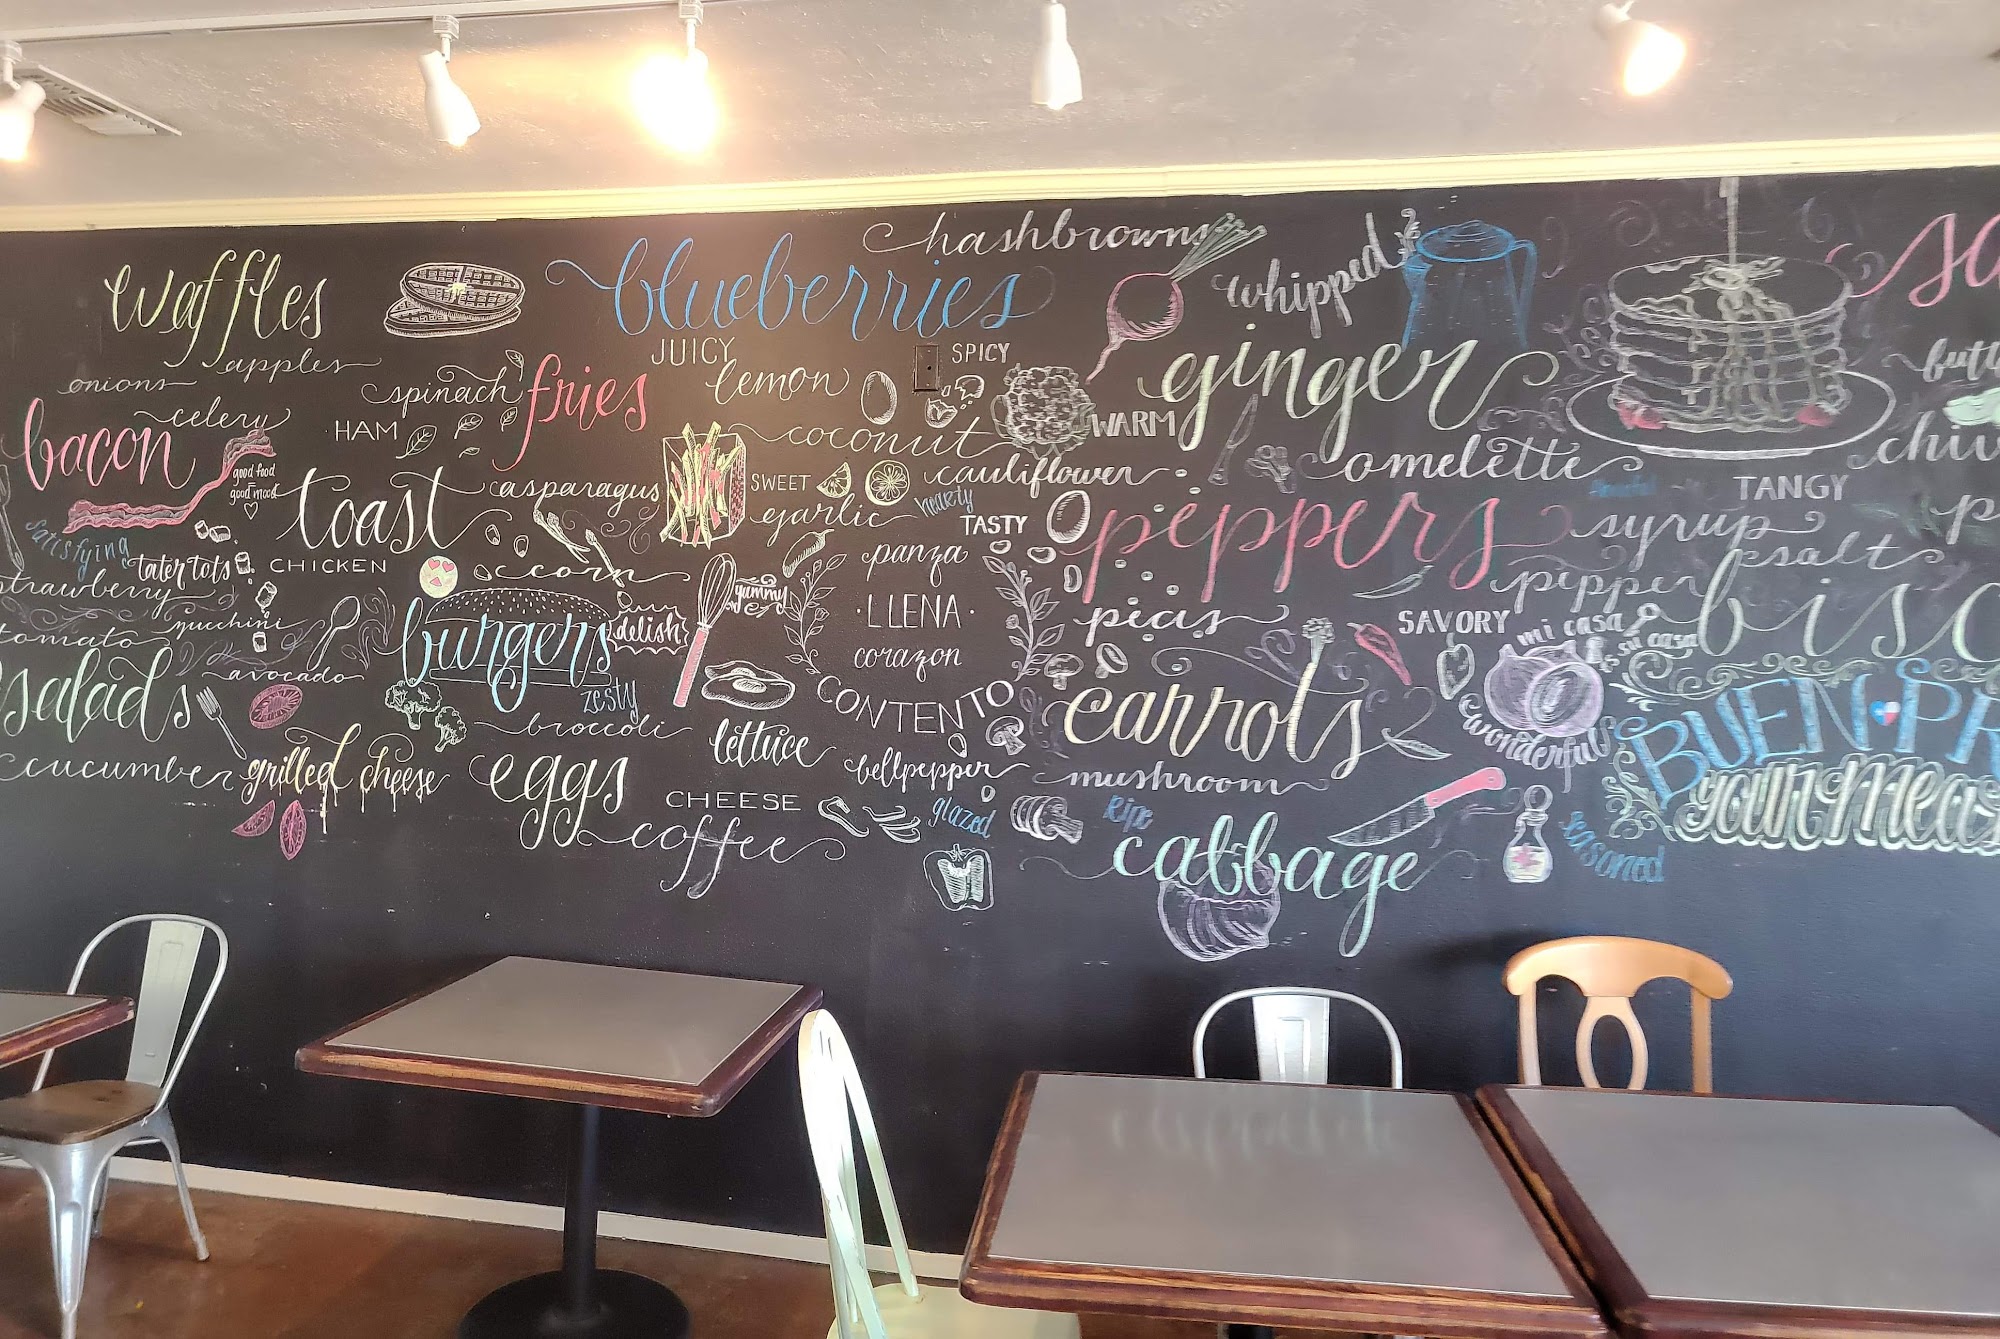 waffles
apples
onions
celery
bacon
good food
=
good mood
satisfying
tater tots
strawberry
zucchini
tomato
avocado
salads
cucumber
grilled cheese
spinach
HAM
fries
toast
asparagus
CHICKEN
corn
burgers
delish
zesty
broccoli
eggs
CHEESE
coffee
blueberries
hashbrowns
JUICY
lemon
SPICY
coconut
WARM
SWEET
cauliflower
garlic
hearty
TASTY
yummy
panza
·LLENA·
corazon
CONTENTO
lettuce
bellpepper
glazed
whipped
ginger
omelette
peppers
peas
carrots
mushroom
Ripe
cabbage
TANGY
syrup
salt
pepper
SAVORY
mi casa
es su casa
wonderful
seasoned
BUEN
your